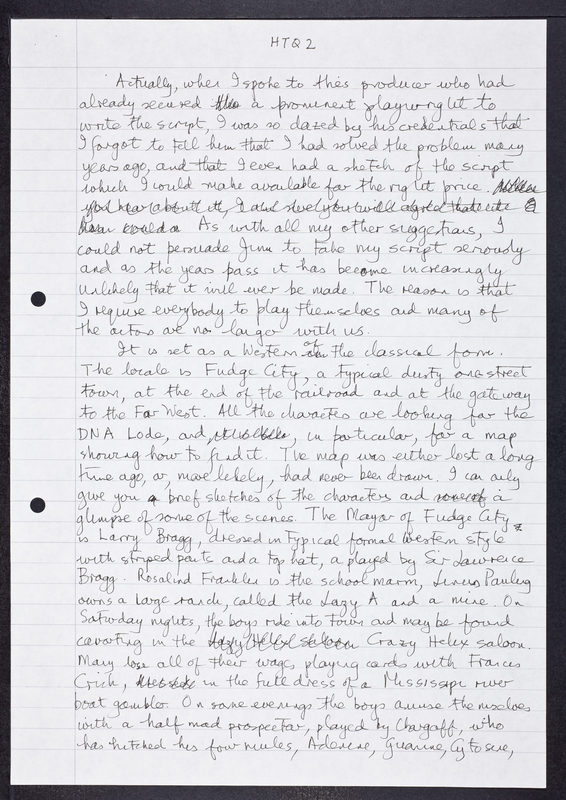 HTQ 2
Actually, when I spoke to this producer who had
already secured a prominent playwright to
write the script, I was so dazed by his credentials that
I forgot to tell him that I had solved the problem many
years ago, and that I even had a sketch of the script
which I would make available for the right price.
you hear about it, I am sure you will agree that
As with all my other suggestions, I
could not persuade Jim to take my script seriously
and as the years pass it has become increasingly
unlikely that it will ever be made. The reason is that
I require everybody to play themselves and many of
the actors are no longer with us.
It is set as a Western of the classical form.
The locale is Fudge City, a typical dusty one street
town, at the end of the railroad and at the gateway
to the Far West. All the characters are looking for the
DNA Lode, and, in particular, for a map
showing how to find it. The map was either lost a long
time ago, or, more likely, had never been drawn. I can only
give you brief sketches of the characters and a
glimpse of some of the scenes. The Mayor of Fudge City
is Larry Bragg, dressed in typical formal Western style
with striped pants and a top hat, a played by Sir Lawrence
Bragg. Rosalind Franklin is the school marm, Linus Pauling
owns a large ranch, called the Lazy A and a mine. On
Saturday nights, the boys ride into town and may be found
cavorting in the Lazy Helix saloon Crazy Helix saloon.
Many lose all of their wages playing cards with Francis
Crick, in the full dress of a Mississippi river
boat gambler. On some evenings the boys amuse themselves
with a half mad prospector, played by Chargaff, who
has hitched his four mules, Adenine, Guanine, Cytosine,